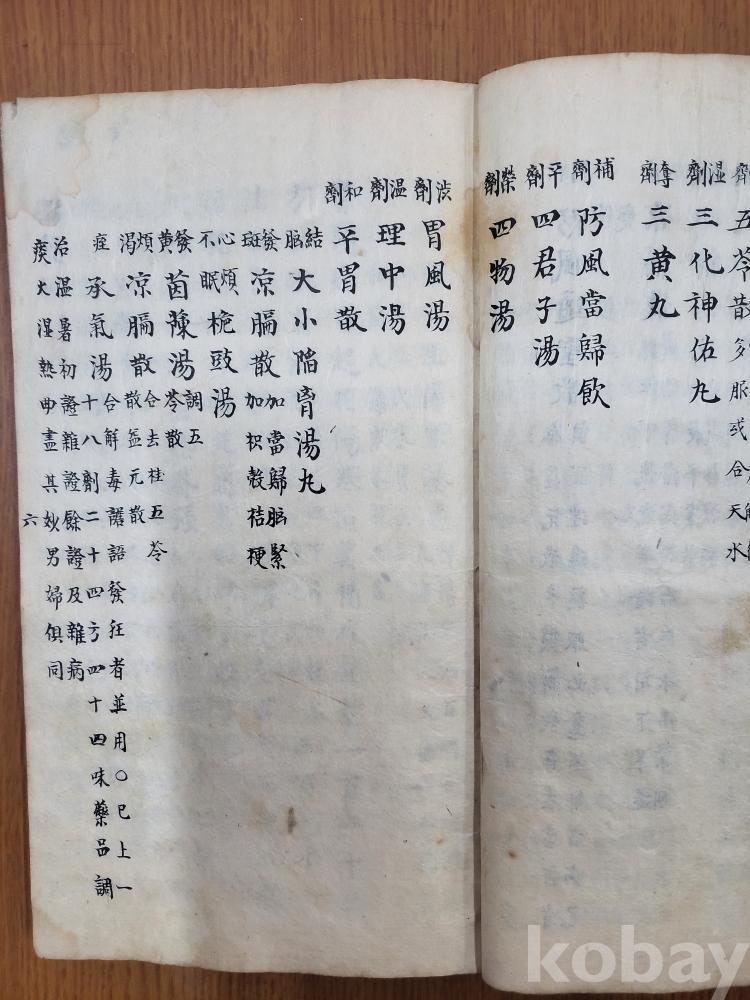 劑五苓散
湿劑三化神佑丸
奪劑三黄丸
補劑防風當歸飲
平劑四君子湯
榮劑四物湯
澁劑胃風湯
温劑理中湯
和劑平胃散
結胸大小陷胷湯丸
發斑凉膈散加當歸胸緊加枳殻桔梗
心煩不眠梔豉湯
發黄茵蔯湯調五苓散
煩渴凉膈散合去桂五苓散益元散
症承氣湯合解毒譫語發狂者並用〇已上一十八劑二十四方四十四味藥品調
治温暑初證雜證餘證及雜病
痰火湿熱曲盡其妙男婦俱同
六
kobay